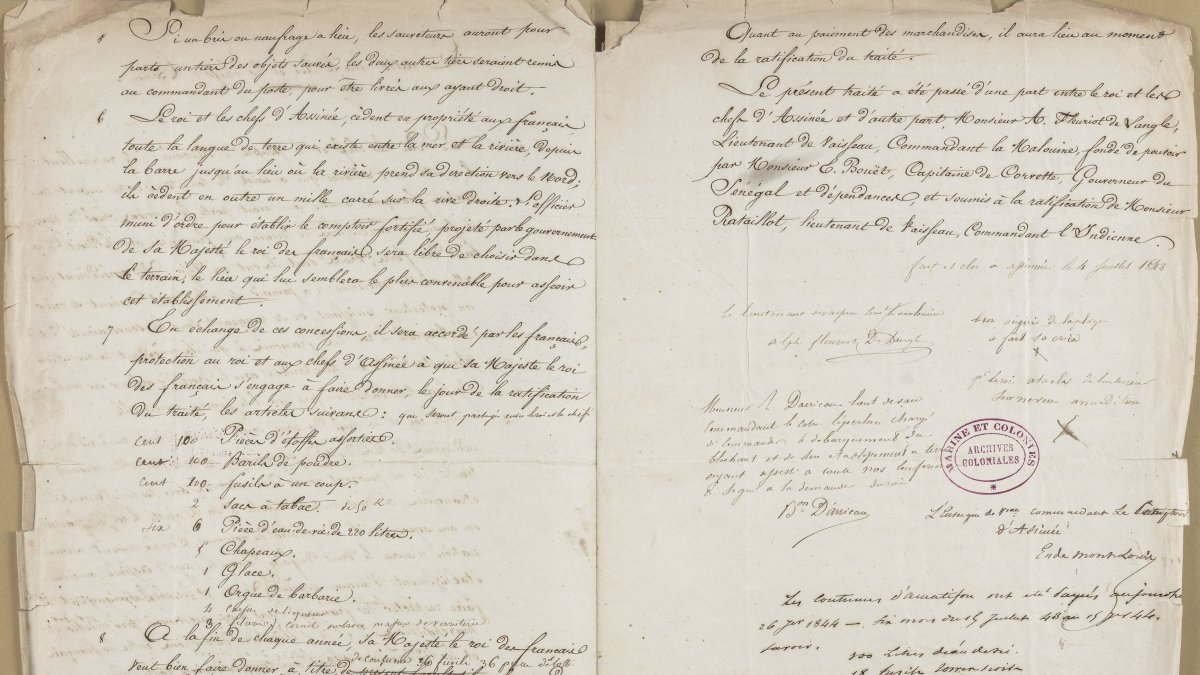 5 Si un bris ou naufrage a lieu, les sauveteurs auront pour
parts un tiers des objets sauvés, les deux autres tiers seraient remis
au commandant du poste pour être livrés aux ayant droit.
6 Le roi et les chefs d'Assinée, cèdent en propriété aux français
toute la langue de terre qui existe entre la mer et la rivière, depuis
la barre jusqu'au lieu où la rivière prend sa direction vers le Nord;
ils cèdent en outre un mille carré sur la rive droite. L'officier
muni d'ordre pour établir le comptoir fortifié, projeté par le gouvernement
de sa Majesté le roi des français, sera libre de choisir dans
le terrain, le lieu qui lui semblera le plus convenable pour asseoir
cet établissement.
7 En échange de ces concessions, il sera accordé par les français,
protection au roi et aux chefs d'Assinée à qui sa Majesté le roi
des français s'engage à faire donner, le jour de la ratification
du traité, les articles suivans: que seront partagés entre le roi et les chefs
cent 100 Pièces d'étoffes assorties.
cent 100 Barils de poudre.
cent 100 fusils à un coup.
2 sacs à tabac. de 50 k
six 6 Pièces d'eau-de-vie de 220 litres.
5 Chapeaux.
1 Glace.
1 Orgue de barbarie.
4 de liqueur
3
8 A la fin de chaque année, sa Majesté le roi des français
veut bien faire donner à titre de
Quant au paiement des marchandises, il aura lieu au moment
de la ratification du traité.
Le présent traité a été passé d'une part entre le roi et les
chefs d'Assinée et d'autre part, Monsieur A. Fleuriot de Langle,
Lieutenant de Vaisseau, Commandant la Malouine, fondé de pouvoir
par Monsieur E. Bouët, Capitaine de Corvette, Gouverneur du
Sénégal et dépendances, et soumis à la ratification de Monsieur
Rataillot, lieutenant de Vaisseau, Commandant l'Indienne.
fait et clos à assinée le 4 juillet 1843
Le lieutenant de vaisseau
Alph. fleuriot De Langle
a fait sa croix
X
son neveu
X
Monsieur Darricau
commandant chargé
de commander le débarquement du
blockhaus et de son
ayant assisté à toute nos
a signé à la demande du roi
Bon Darricau
MARINE ET COLONIES
ARCHIVES
COLONIALES
L'Enseigne de Vau commandant le comptoir
d'Assinée
Les coutumes d'amatifou ont été payées aujourd'hui
26 1844 — six mois du 5 juillet 43 au 5 44.
Savoir.
100 Litres d'eau de vie.
18 fusils